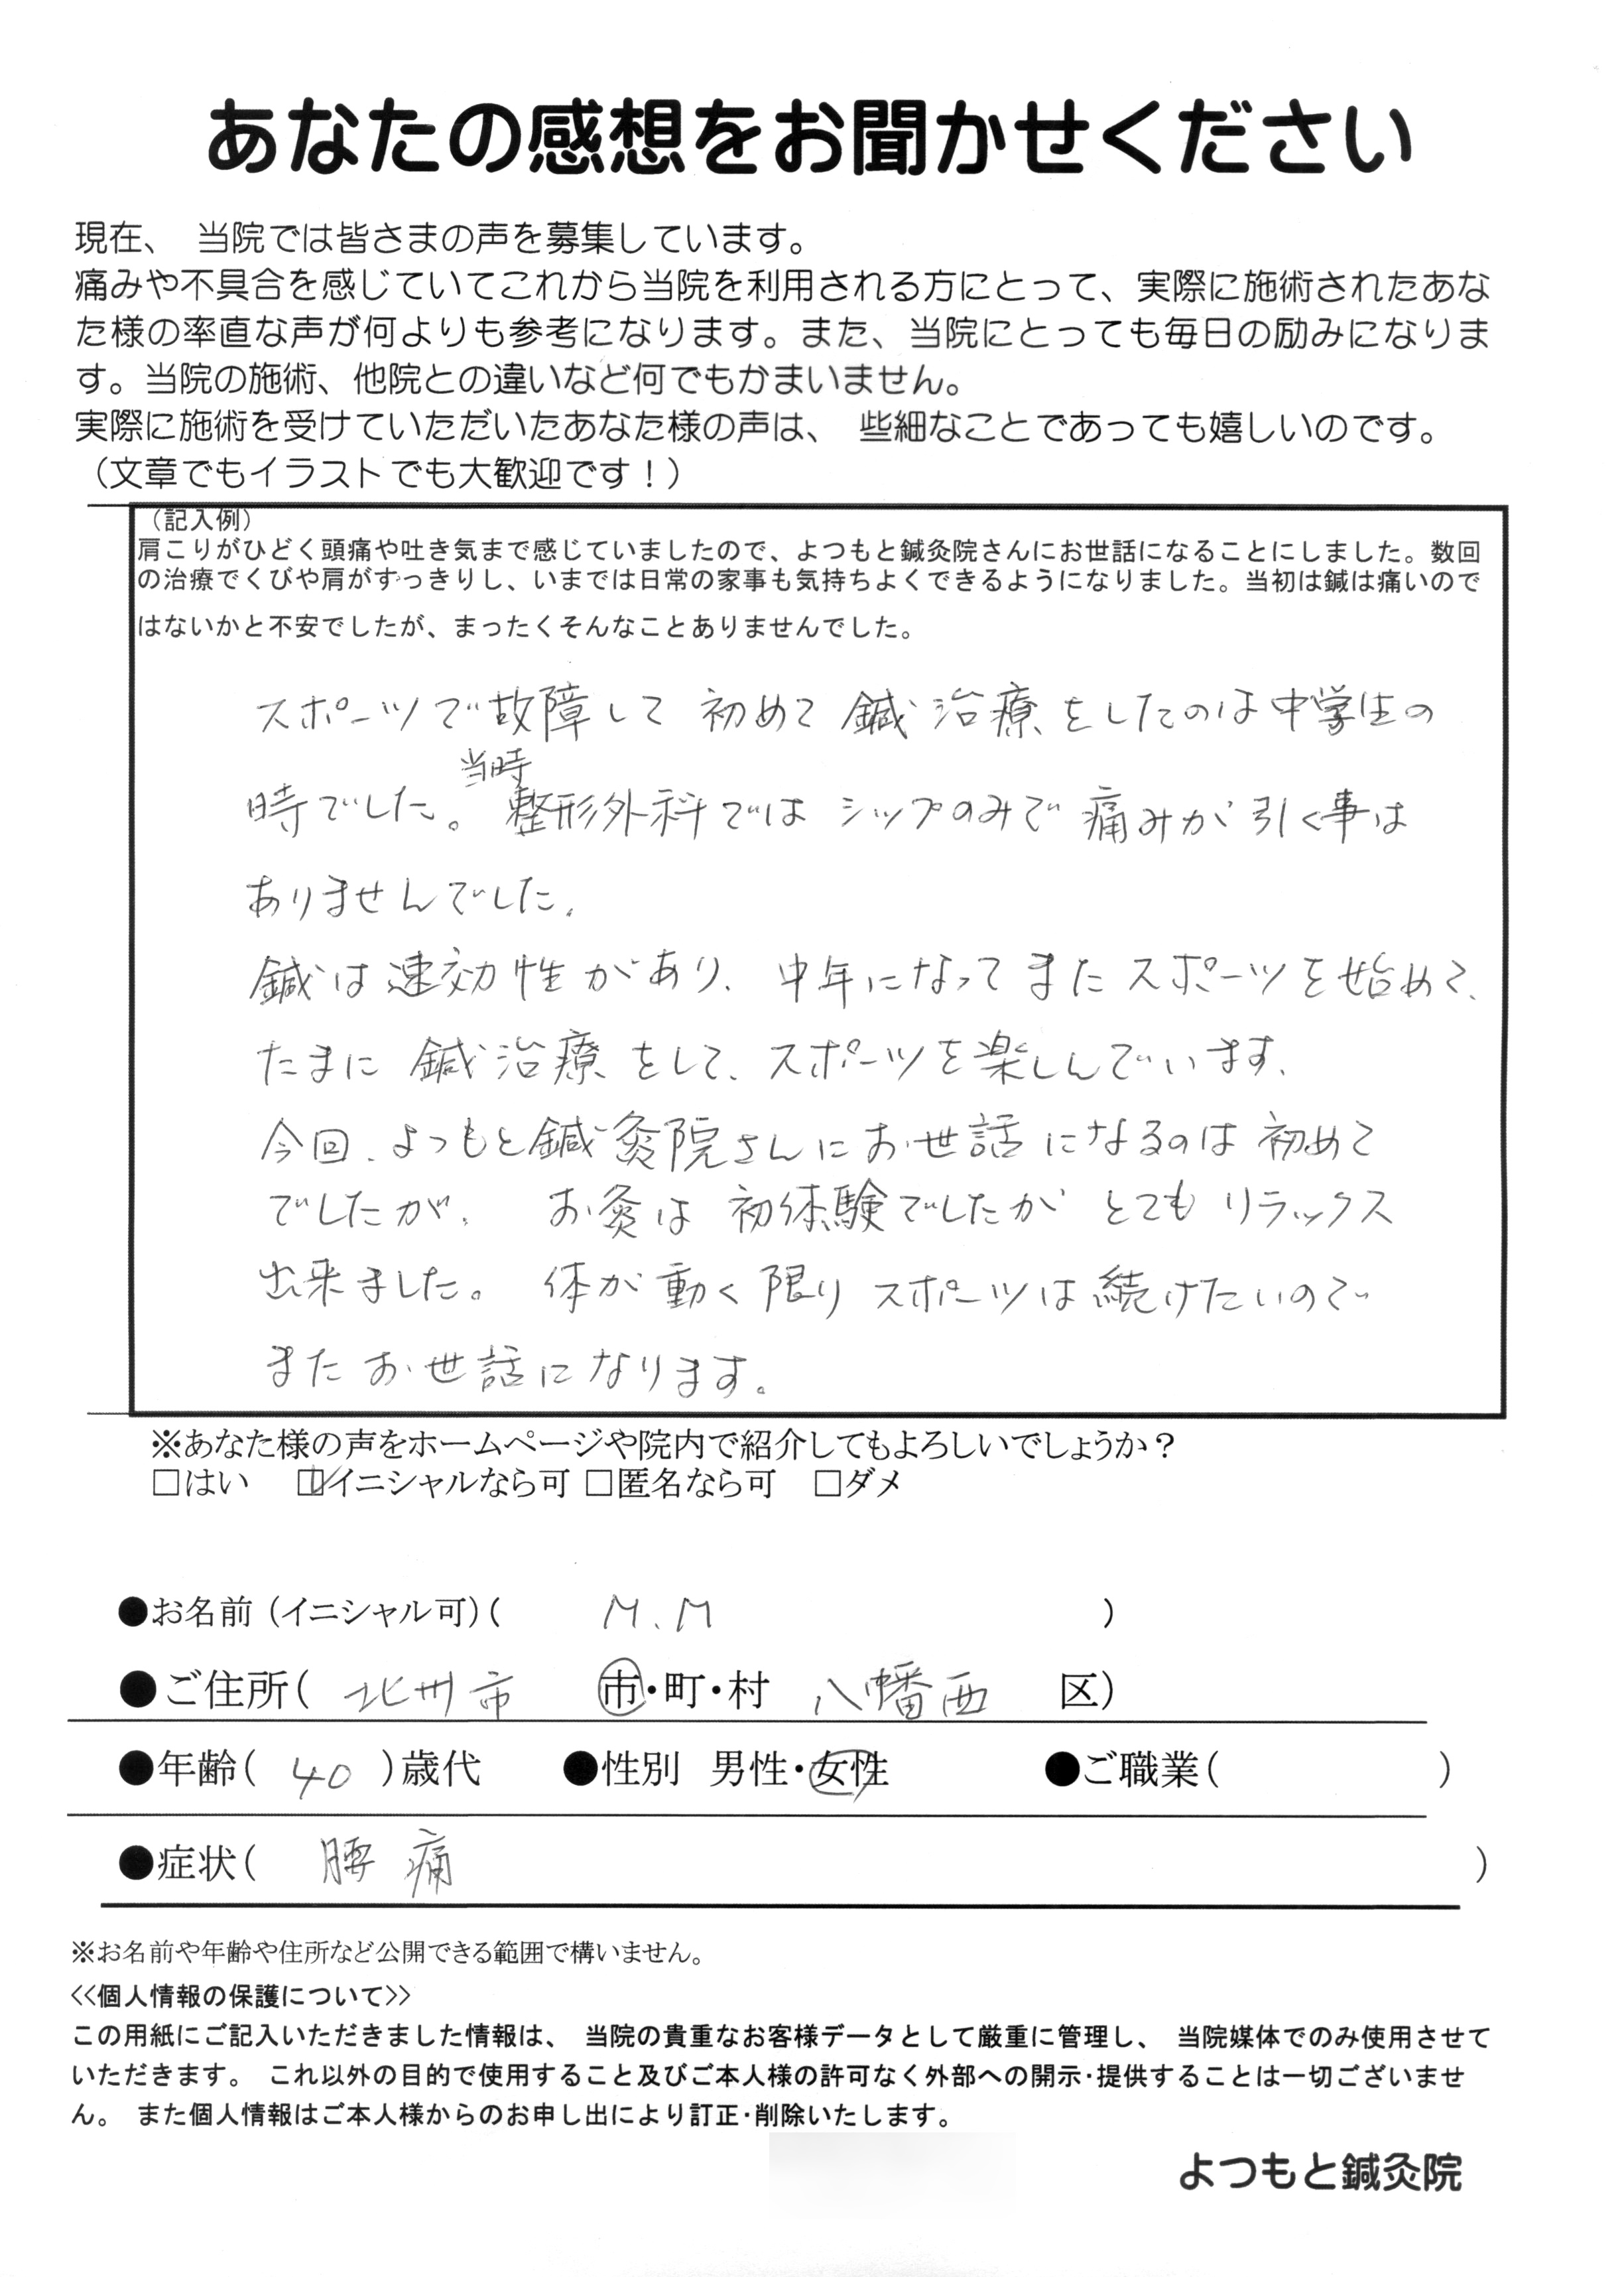 あなたの感想をお聞かせください
現在、 当院では皆さまの声を募集しています。
痛みや不具合を感じていてこれから当院を利用される方にとって、実際に施術されたあな
た様の率直な声が何よりも参考になります。また、当院にとっても毎日の励みになりま
す。当院の施術、他院との違いなど何でもかまいません。
実際に施術を受けていただいたあなた様の声は、 些細なことであっても嬉しいのです。
（文章でもイラストでも大歓迎です！）
（記入例）
肩こりがひどく頭痛や吐き気まで感じていましたので、よつもと鍼灸院さんにお世話になることにしました。数回
の治療でくびや肩がすっきりし、いまでは日常の家事も気持ちよくできるようになりました。当初は鍼は痛いので
はないかと不安でしたが、まったくそんなことありませんでした。
スポーツで故障して 初めて 鍼治療をしたのは中学生の
当時
時でした。整形外科では シップのみで 痛みが引く事は
ありませんでした。
鍼は速効性があり、中年になってまたスポーツを始めて、
たまに 鍼治療をして、スポーツを楽しんでいます。
今回、よつもと鍼灸院さんにお世話になるのは初めて
でしたが、 お灸は 初体験でしたが とてもリラックス
出来ました。 体が動く限りスポーツは続けたいので
またお世話になります。
※あなた様の声をホームページや院内で紹介してもよろしいでしょうか？
□はい ☑イニシャルなら可 □匿名なら可 □ダメ
●お名前（イニシャル可）( M.M )
●ご住所( 北州市 市・町・村 八幡西 区)
●年齢( 40 )歳代 ●性別 男性・女性 ●ご職業( )
●症状( 腰痛 )
※お名前や年齢や住所など公開できる範囲で構いません。
<<個人情報の保護について>>
この用紙にご記入いただきました情報は、 当院の貴重なお客様データとして厳重に管理し、 当院媒体でのみ使用させて
いただきます。 これ以外の目的で使用すること及びご本人様の許可なく外部への開示・提供することは一切ございませ
ん。 また個人情報はご本人様からのお申し出により訂正・削除いたします。
よつもと鍼灸院